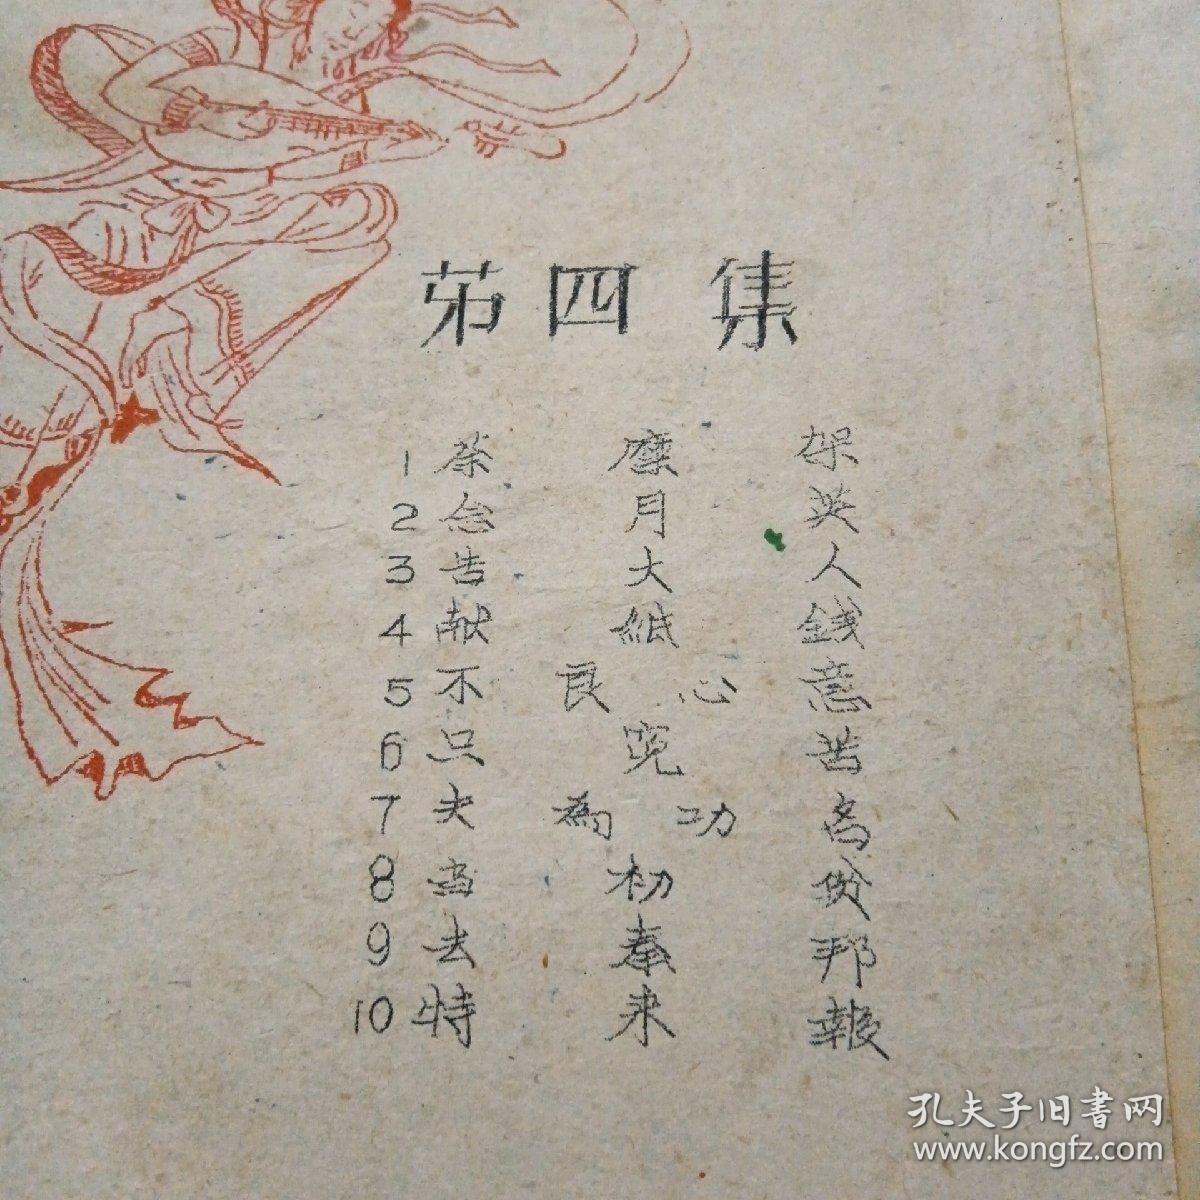 第四集
1 茶 糜 架
2 念 月 英
3 告 大 人
4 献 紙 錢
5 不 良 心 意
6 只 晥 苦
7 夫 為 功 高
8 当 初 贷
9 去 奉 邦
10 特 来 報
孔夫子旧書网
www.kongfz.com